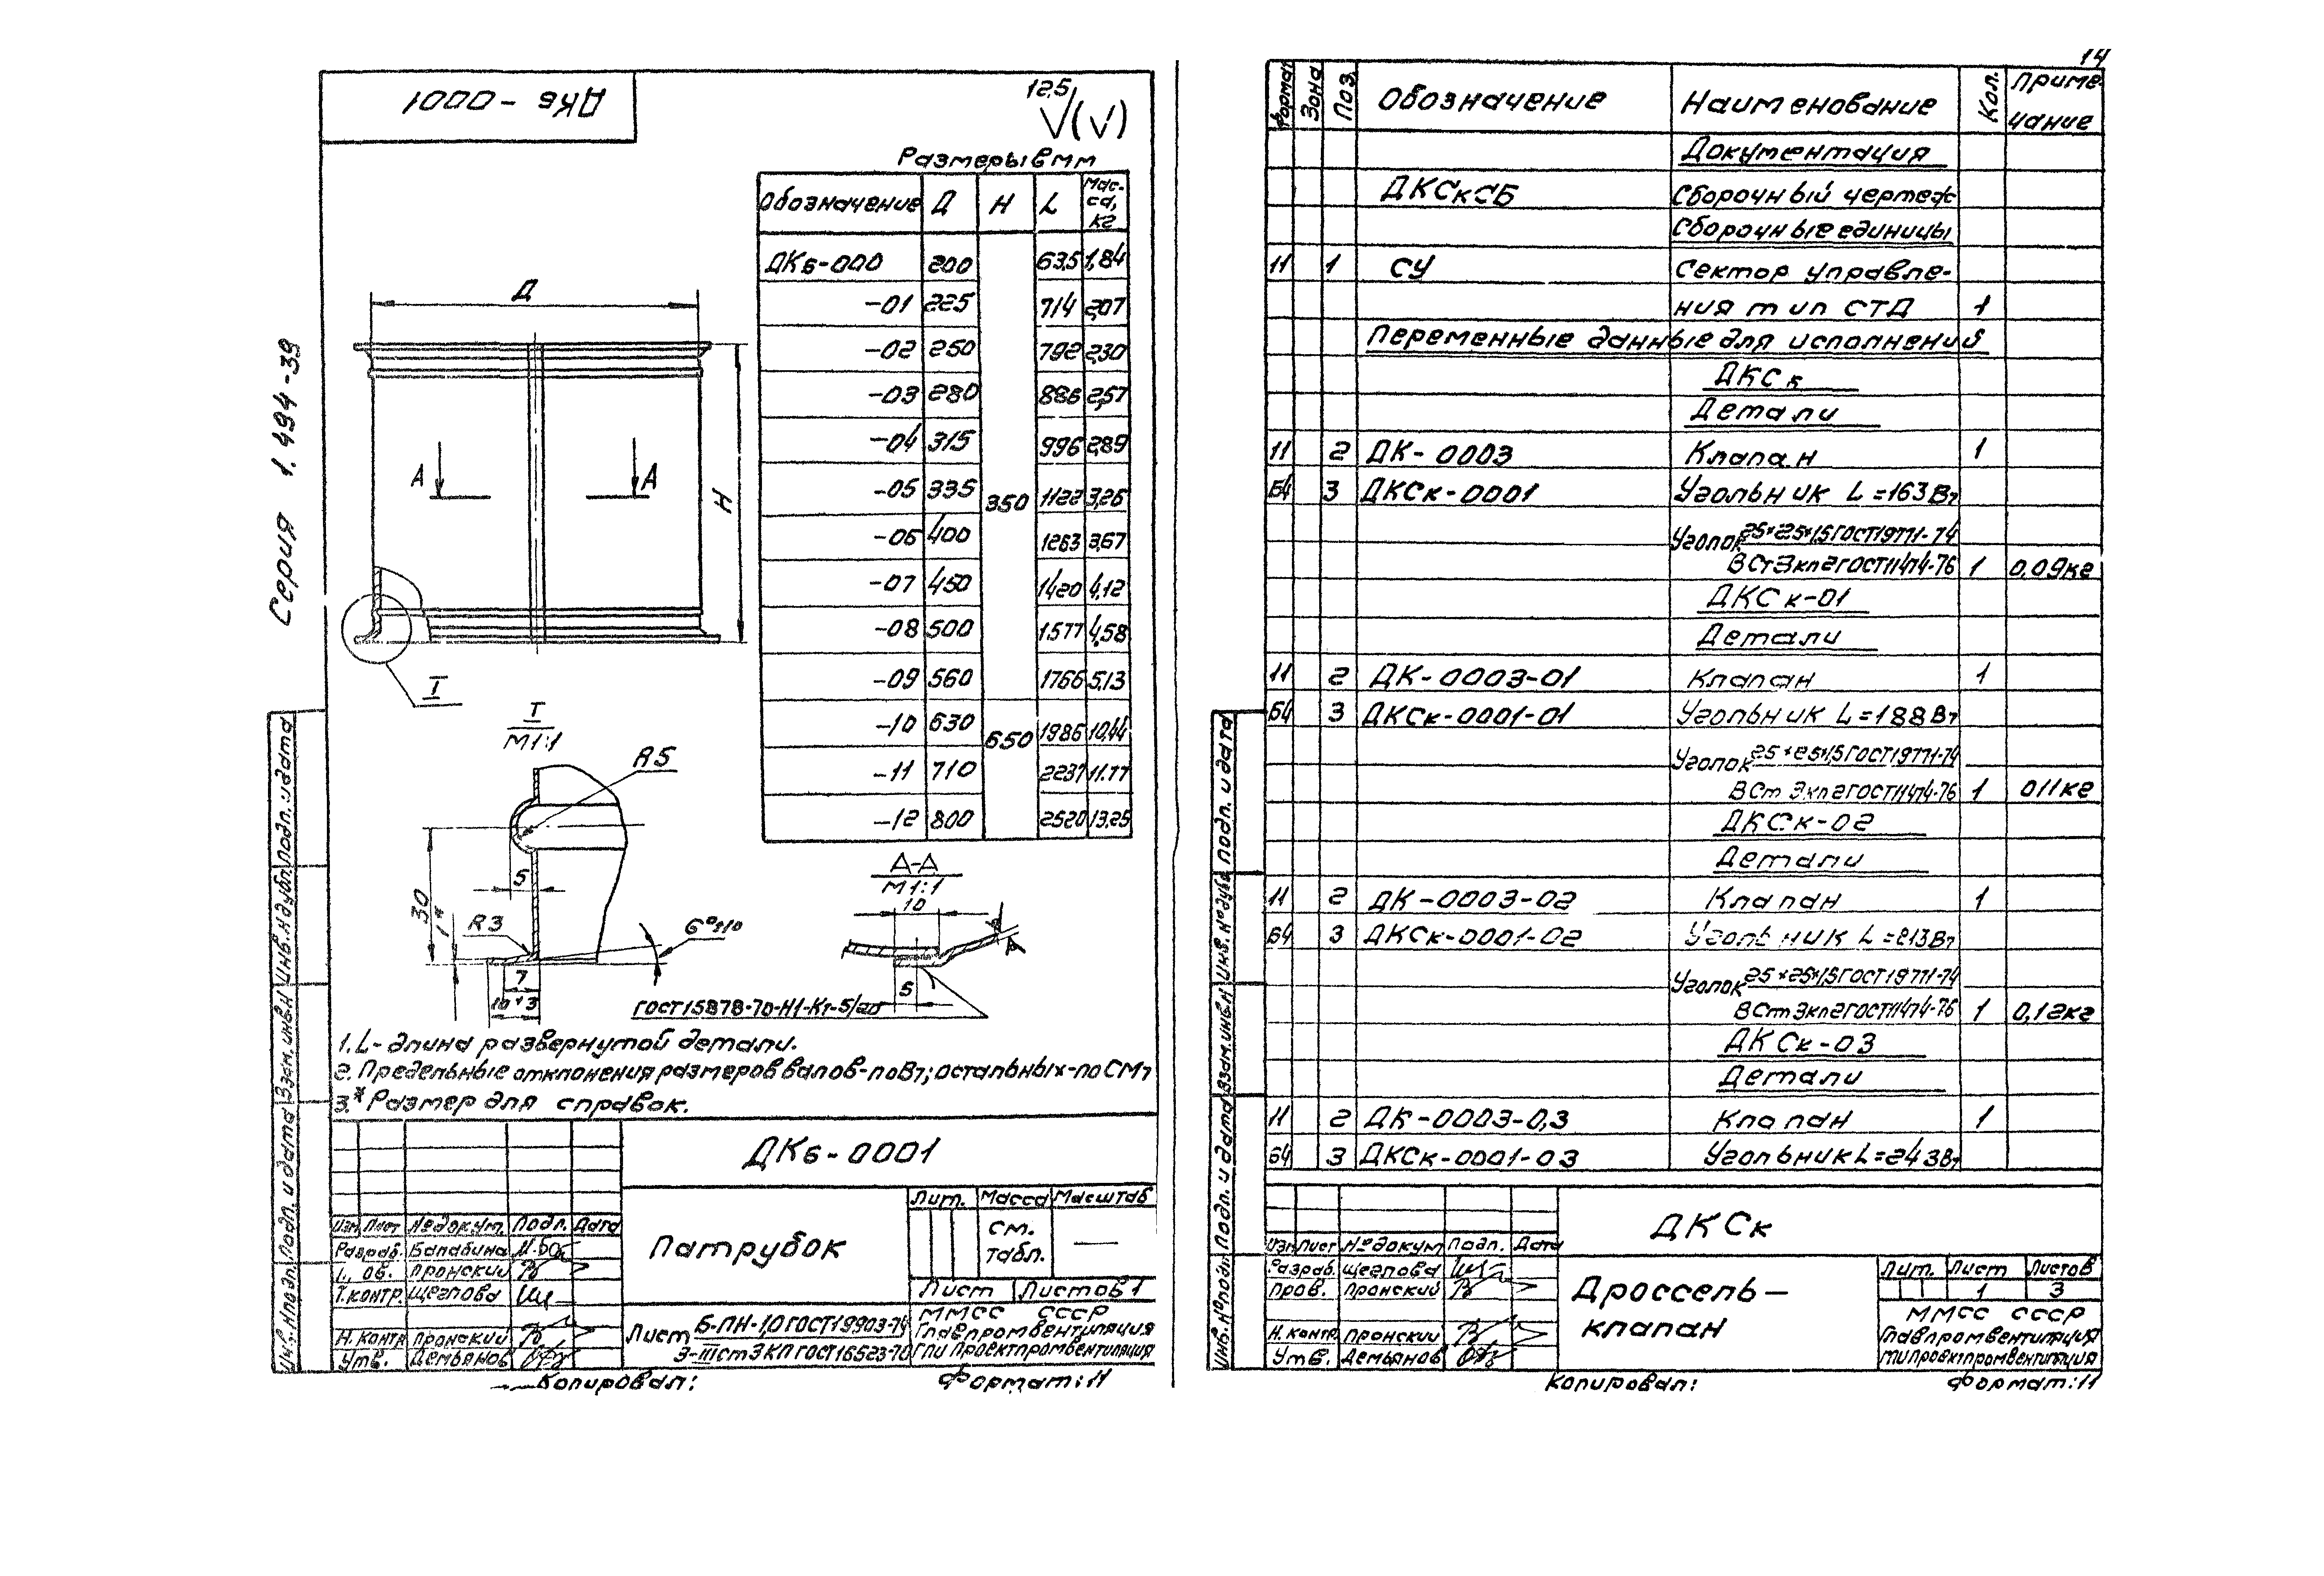 ДКв -0001
12,5
√(√)
Серия 1.494-39
Размеры в мм
Обозначение Д Н L Масса, кг
ДКв-000 200 635 1,84
-01 225 714 2,07
-02 250 792 2,30
-03 280 886 2,57
-04 315 996 2,89
-05 335 350 1122 3,26
-06 400 1263 3,67
-07 450 1420 4,12
-08 500 1577 4,58
-09 560 1766 5,13
-10 630 650 1986 10,44
-11 710 2237 11.77
-12 800 2520 13,25
Д
А А
Н
I
I
М1:1
R5
5
30
1*
R3
6°±10
7
10+3
А-А
М1:1
10
5
ГОСТ15878-70-Н1-Кт-5/20
1. L- длина развернутой детали.
2. Предельные отклонения размеров валов-по В7; остальных-по СМ7
3.* Размер для справок.
ДКв-0001
Патрубок
Лит. Масса Масштаб
см.
табл. —
Лист Листов 1
Изм. Лист №докум. Подп. Дата
Разраб. Балабина
Пронский
Т.контр. Щеглова
Н. контр. Пронский
Утв. Демьянов
Лист Б-ПН-1,0 ГОСТ19903-74
3-III ст 3 КП ГОСТ 16523-70
ММСС СССР
Главпромвентиляция
ГПИ Проектпромвентиляция
Копировал: Формат: 11
Инв.№подл. Подп. и дата Взам.инв.№ Инв.№дубл. Подп. и дата
14
Формат Зона Поз. Обозначение Наименование Кол. Приме-
чание
Документация
ДКСкСБ Сборочный чертеж
Сборочные единицы
11 1 СУ Сектор управле-
ния тип СТД 1
Переменные данные для исполнений
ДКСк
Детали
11 2 ДК- 0003 Клапан 1
Б4 3 ДКСк-0001 Угольник L=163В7
Уголок 25×25×1,5 ГОСТ19771-74
ВСт3кп2 ГОСТ11474-76 1 0,09кг
ДКСк-01
Детали
11 2 ДК-0003-01 Клапан 1
Б4 3 ДКСк-0001-01 Угольник L=188В7
Уголок 25×25×1,5 ГОСТ19771-74
ВСт3кп2 ГОСТ11474-76 1 011кг
ДКСк-02
Детали
11 2 ДК-0003-02 Клапан 1
Б4 3 ДКСк-0001-02 Угольник L=213В7
Уголок 25×25×1,5 ГОСТ19771-74
ВСт3кп2 ГОСТ11474-76 1 0,12кг
ДКСк-03
Детали
11 2 ДК-0003-0,3 Клапан 1
Б4 3 ДКСк-0001-03 Угольник L=243В7
ДКСк
Изм Лист №докум Подп. Дата
Разраб. Щеглова
Пров. Пронский
Н. контр. Пронский
Утв. Демьянов
Дроссель-
клапан
Лит. Лист Листов
1 3
ММСС СССР
Главпромвентиляция
ГПИПроектпромвентиляция
Копировал: Формат: 11
Инв.№подл. Подп. и дата Взам.инв.№ Инв.№дубл. Подп. и дата